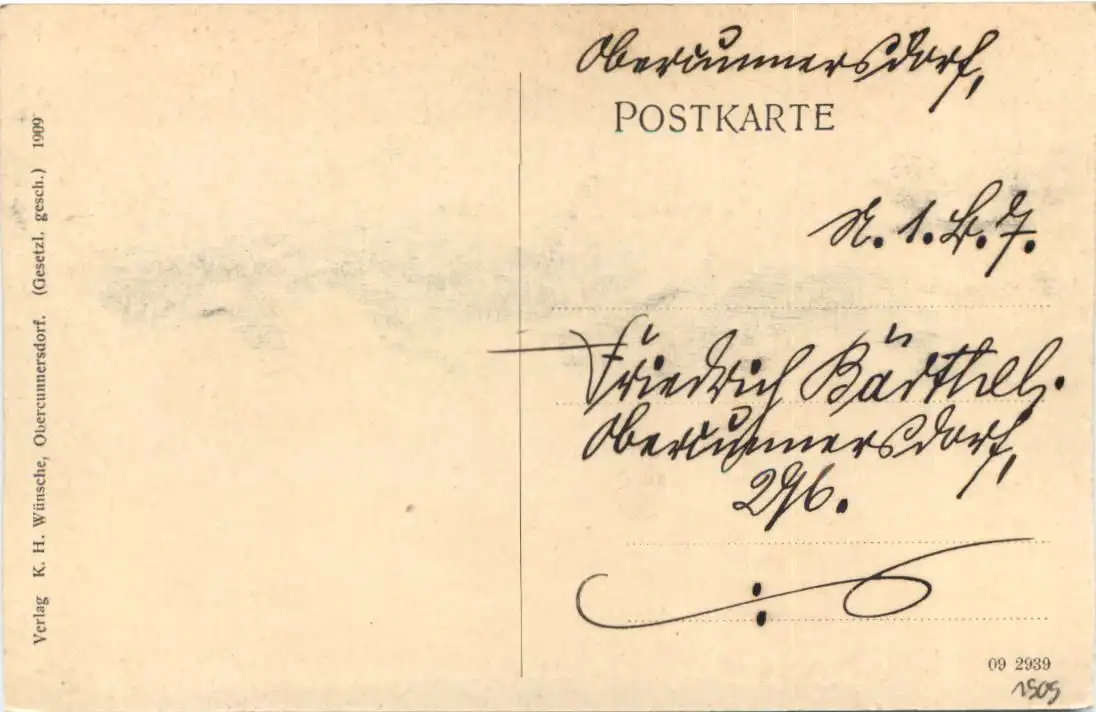 Obercunnersdorf,
POSTKARTE
A. 1. B. 7.
Friedrich
Obercunnersdorf,
296.
Verlag K. H. Wünsche, Obercunnersdorf. (Gesetzl. gesch.) 1909
09 2939
1909